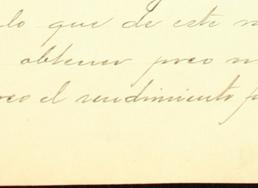 lo que de este
obtener poco
el rendimiento